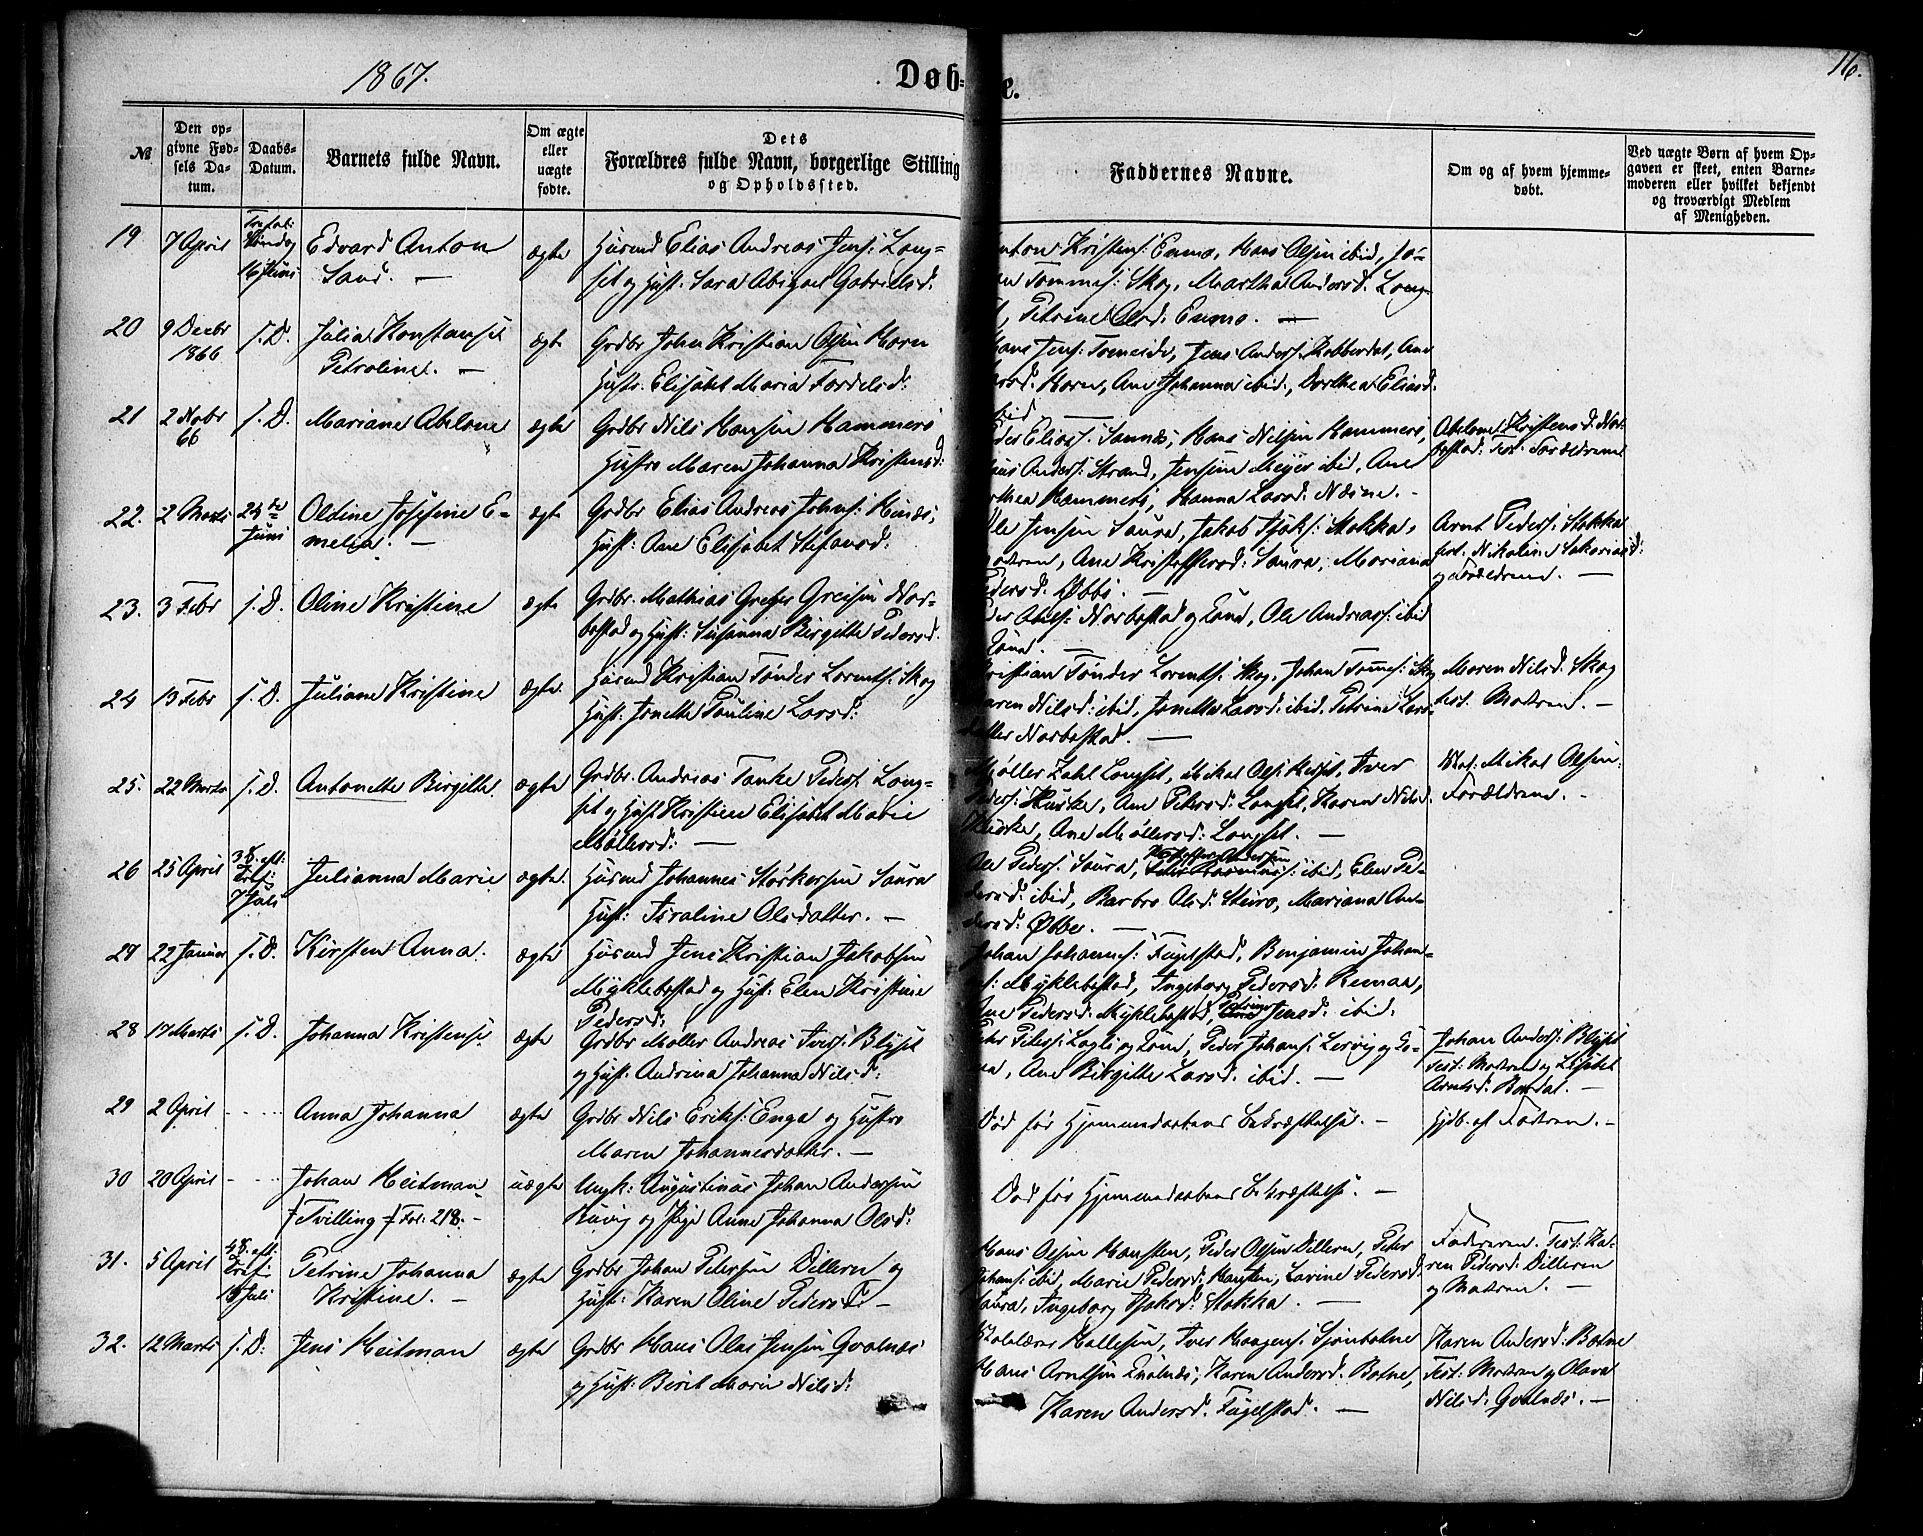 1867.
Døb-
e.
16.
№
Den op-
givne Fød-
sels Da-
tum.
Daabs-
Datum.
Barnets fulde Navn.
Om ægte
eller
uægte
fødte.
Dets
Forældres fulde Navn, borgerlige Stilling
og Opholdssted.
Faddernes Navne.
Om og af hvem hjemme-
døbt.
Ved uægte Børn af hvem Op-
gaven er skeet, enten Barne-
moderen eller hvilket bekjendt
og troværdigt Medlem
af Menigheden.
19 7 April 16 Juni Edvard Anton ægte Elias Andreas Jens: Lang-
set og Hust: Sara Abigael Gabrielsd.
Kristens: Enmo, Hans Olsen ibid, Jo-
Tommes: Skog, Martha Andersd. Lang-
Petrine Olsd. Enmo. —
20 9 Decbr 1866 s. D. Julia Konstanse ægte Grdbr John Kristian Olsen Horn
Petroline. — Hustr. Elisabet Maria Tordelsd:
Hans Jens: Tomeide, Jens Anders: Kobberdal, Ane
Horn, Ane Johanna ibid, Dorthea Eliasd.
ibid —
21 2 Novbr 66 s. D. Mariane Abelone ægte Grdbr Nils Hansen Hammerø
Hustro Maren Johanna Kristensd:
Elias: Sannæs, Hans Nilsen Hammerø,
Anders: Strand, Jensine Meyer ibid, Ane
Hammerø, Hanna Larsd. Næsne. -
Abelone Kristensd. Nor-
bostad: Test. Forældrene
22. 2 Marts 24de Juni Oldine Josefine E-
melia. — ægte Grdbr Elias Andreas Johns: Husnæs,
Hust: Ane Elisabet Stefansd:
Ole Jensen Saura, Jakob Tjøks: Stokka,
Modren, Ane Kristoffersd: Saura, Mariana
Pedersd. Øbbe. —
Arnt Peders: Stokka
test. Nikoline Sakariasd:
og Forældrene. —
23. 3 Febr s. D. Oline Kristine ægte Grdbr. Mathias Greger Greisen Nor-
bostad og Hust: Susanna Birgitte Pedersd.
Norbostad og Kone, Ole Andreas: ibid
Kone. —
24 13 Febr s. D. Juliane Kristine ægte. Husmd Kristian Tønder Lorents: Skog
Hust: Jonette Pauline Larsd:
Kristian Tønder Lorents: Skog, Johan Tommes: Skog
Maren Nilsd: ibid, Jonette Larsd. ibid. Petrine Lars-
datter Norbostad. —
Maren Nilsd. Skog
test. Modren. —
25. 22 Marts s. D. Antonette Birgitte. ægte Grdbr. Andreas Tanke Peders: Lang-
set og Hust Kristine Elisabet Marie
Møllersd: —
Møller Zahl Langset, Mikal Ols: Kusset, Iver
Peders: Huske, Ane Petersd: Langset, Karen Nilsd.
Huske, Ane Møllersd: Langset. —
Mikal Olsen:
Forældrene. -
26 25 April 3 S. eft: Tref: 7 Juli Julianna Marie ægte. Husmd Johannes Størkersen Saura
Hust: Israline Olsdatter. —
Ole Peders: Saura, Kristoffer Andersen ibid, Elen Pe-
dersd: ibid, Barbro Olsd: Steiro, Mariana An-
dersd: Øbbe. —
27 22 Januar s. D. Kirsten Anna. ægte Husmd Jens Kristian Jakobsen
Myklebostad og Hust: Elen Kristine
Pedersd:
Johan Johannes: Fagelstad, Benjamin Johan-
Myklebostad, Ingeborg Pedersd: Remaa,
Ane Pedersd: Myklebostad, Petrine Jensd: ibid.
28 17 Marts s. D. Johanna Kristense ægte Grdbr Møller Andreas Ivers: Blysset
og Hust: Andrina Johanna Nilsd:
Peters: Lagli og Kone, Peder Johans: Lervig og Ko-
ne, Ane Birgitte Larsd. ibid. —
Johan Anders: Blysset
Test: Modren og Lisbet
Arntsd. Hordal. —
29 2 April - - - - Anna Johanna ægte Grdbr Nils Eriks: Enge og Hustro
Maren Johannesdatter. —
Død før Hjemmedaabens Bekræftelse. -
Hjdb. af Fadren. -
30 20 April - - - - Johan Heitman
Tvilling Fol: 218. - uægte Ungk: Augustinus Johan Andersen
Husvig og Pige Anne Johanna Olsd:
Død før Hjemmedaabens Bekræftelse. —
31. 5 April 4 S. eft: Tref: Juli Petrine Johanna
Kristine. — ægte Grdbr Johan Petersen Dilleren og
Hust: Karen Oline Pedersd —
Hans Olsen Hansten, Peder Olsen Dilleren, Peter
Johans: ibid, Marie Pedersd: Hansten, Lavine Pedersd:
Saura, Ingeborg Tjøksd: Stokka. —
Faderen. Test: Ka-
ren Pedersd: Dilleren
og Modren. —
32. 12 Marts s. D: Jens Heitman ægte Grdbr Hans Olai Jensen Qvalnæs
og Hust: Berit Marie Nilsd:
Skolelærer Hallesen, Iver Haagens: Sjonbotne
Hans Arntsen Qvalnæs, Karen Andersd. Botne,
Karen Andersd. Fagelstad. —
Karen Andersd. Botne
Test: Modren og Olava
Nilsd. Qvalnæs. —